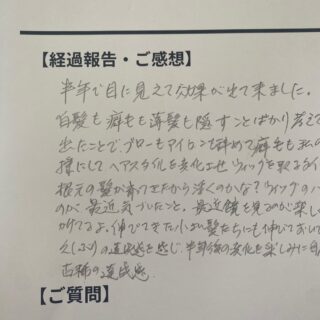 【経過報告・ご感想】
半年で目に見えて効果が出て来ました。
白髪も癖毛も薄髪も隠すことばかり考えて
出たことで、ブローもアイロンも辞めて癖毛も
にして ヘアスタイルを変化させ ウィッグを取る
根元の髪が育ってきたから浮くのかな?ウィッグの
のか、最近気づいたこと。最近鏡を見るのが楽し
てるよ。伸びてきた小さい髪たちにも伸びておいで
久しぶりの達成感を感じ、半年後の変化を楽しみに
古稀の達成感
【ご質問】